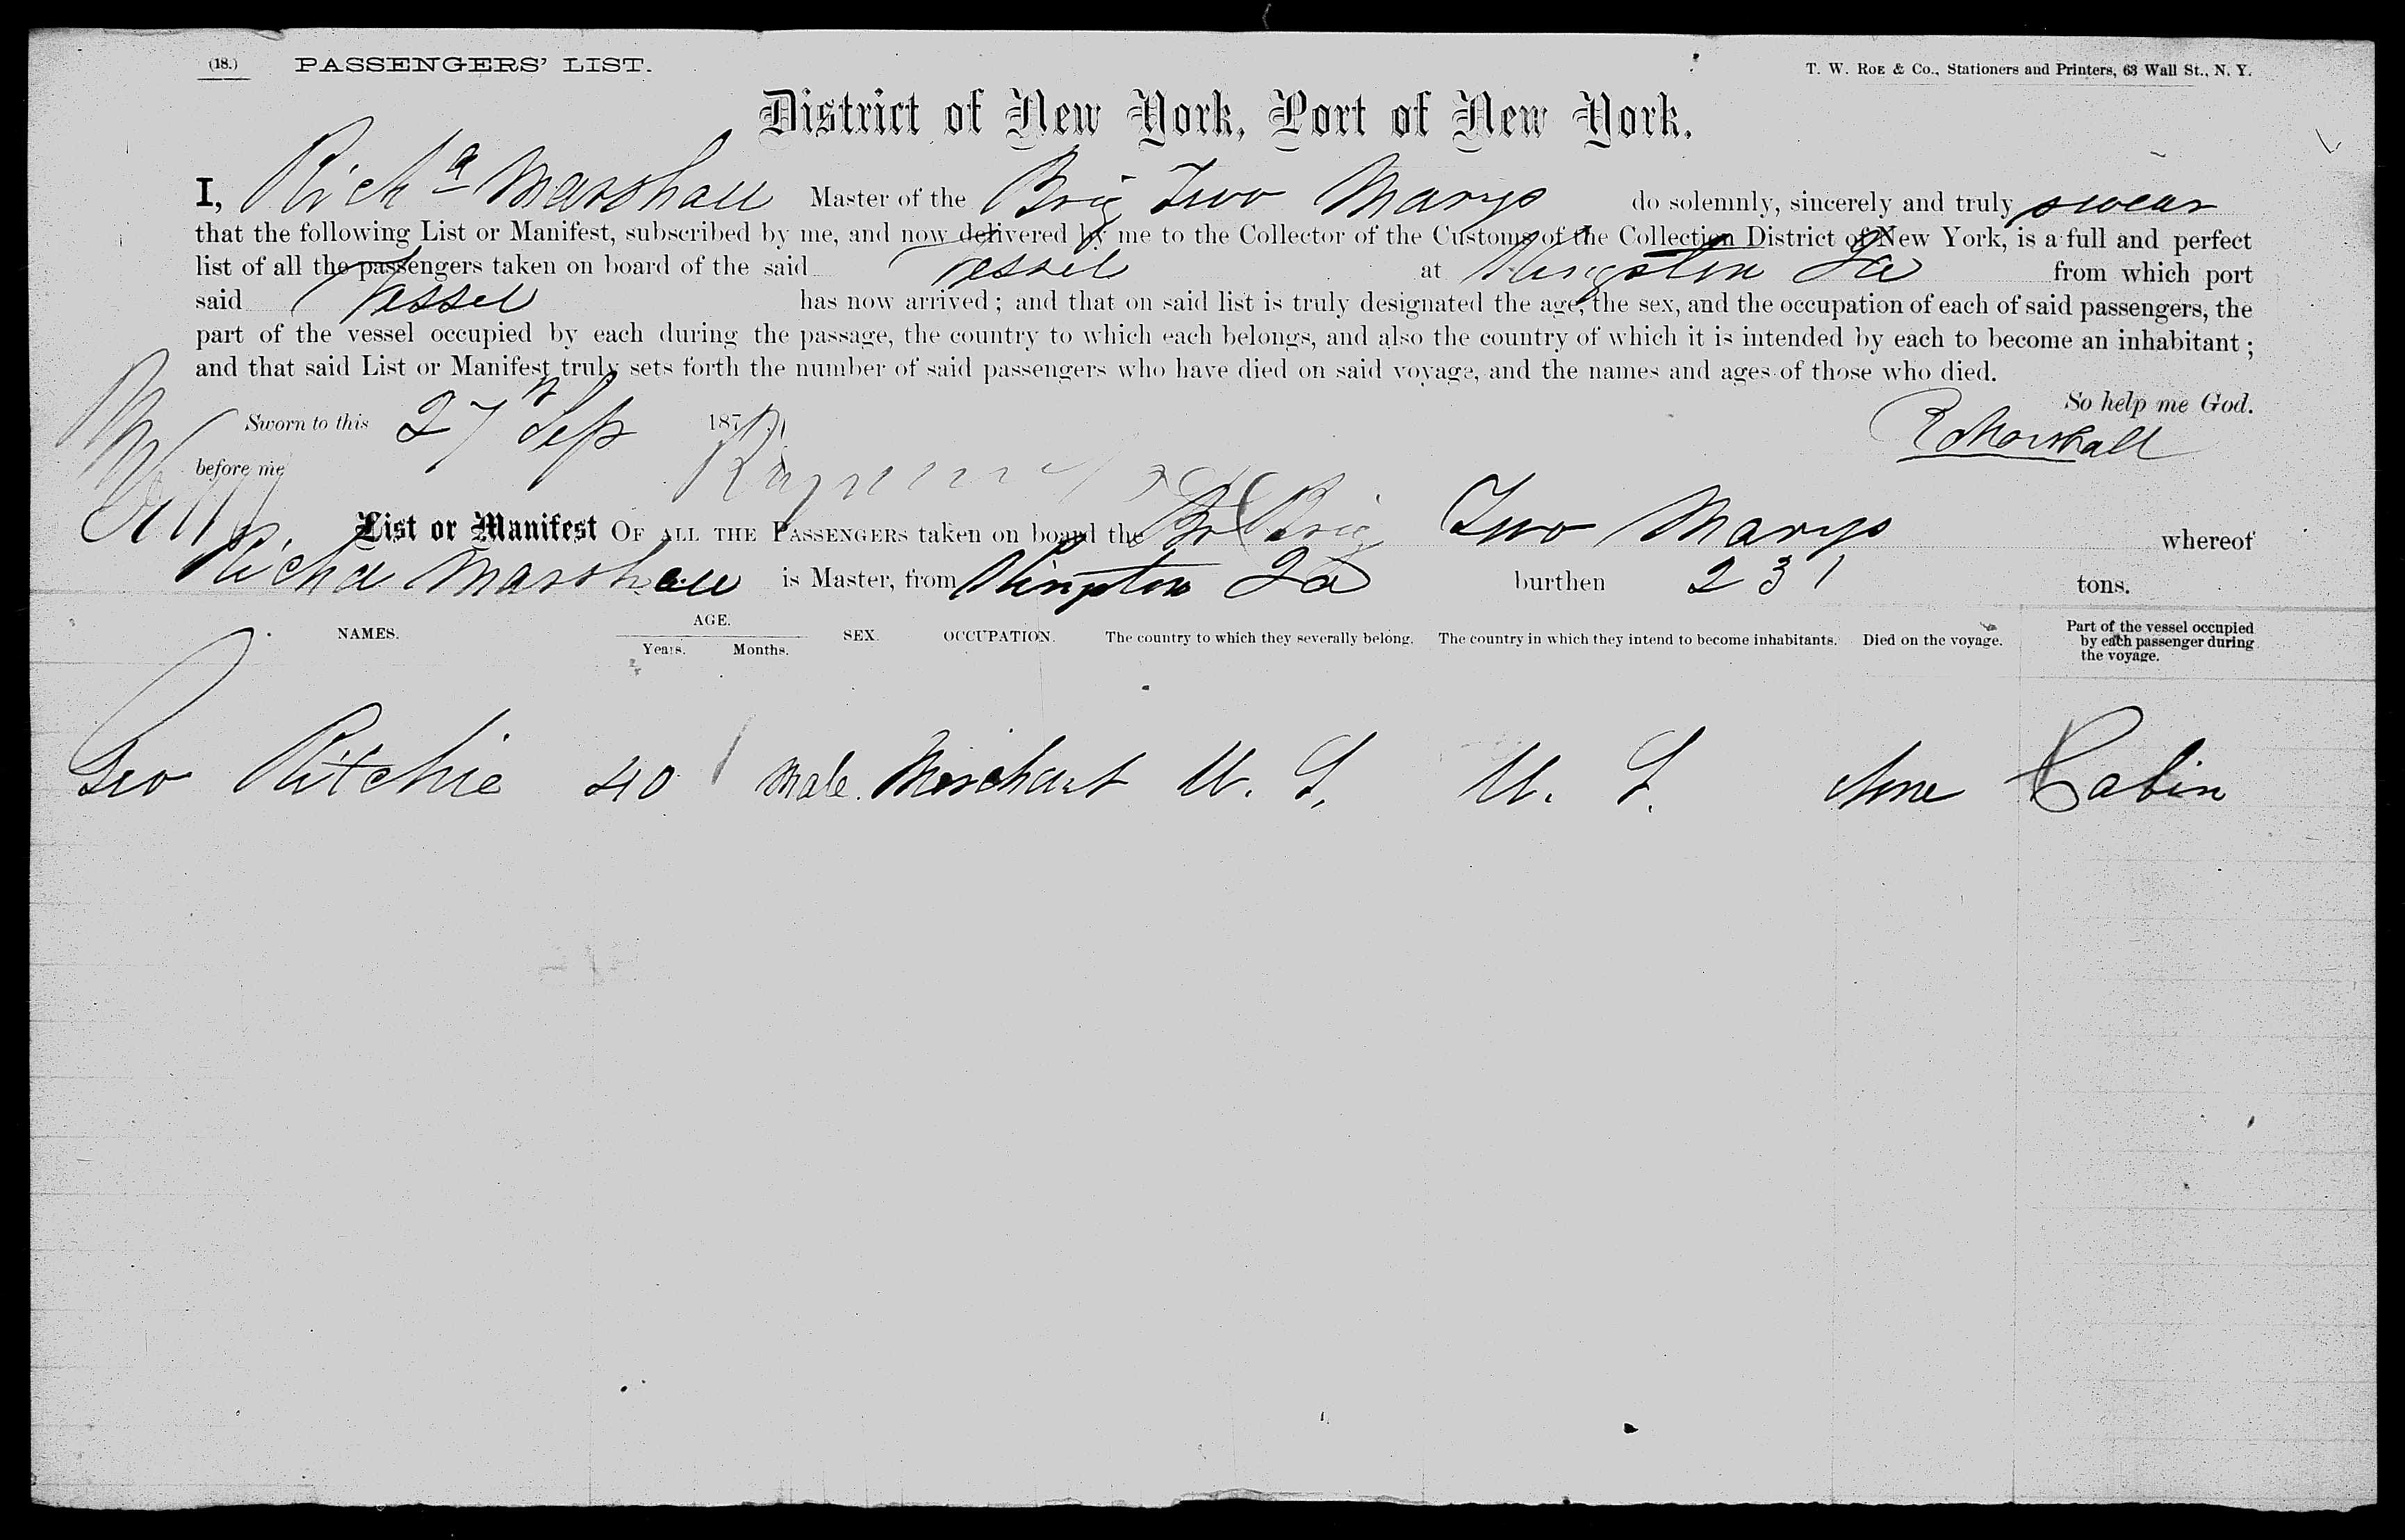 (18.) PASSENGERS' LIST. T. W. Roe & Co., Stationers and Printers, 63 Wall St., N. Y.
District of New York, Port of New York.
I, Richd Marshall Master of the Brig Two Marys do solemnly, sincerely and truly swear
that the following List or Manifest, subscribed by me, and now delivered by me to the Collector of the Customs of the Collection District of New York, is a full and perfect
list of all the passengers taken on board of the said Vessel at Kingston Ja from which port
said Vessel has now arrived; and that on said list is truly designated the age, the sex, and the occupation of each of said passengers, the
part of the vessel occupied by each during the passage, the country to which each belongs, and also the country of which it is intended by each to become an inhabitant;
and that said List or Manifest truly sets forth the number of said passengers who have died on said voyage, and the names and ages of those who died.
So help me God.
Sworn to this 27th Sep 187
R Marshall
before me
List or Manifest OF ALL THE PASSENGERS taken on board the Br Brig Two Marys whereof
Richd Marshall is Master, from Kingston Ja burthen 231 tons.
NAMES. AGE. Years. Months. SEX. OCCUPATION. The country to which they severally belong. The country in which they intend to become inhabitants. Died on the voyage. Part of the vessel occupied by each passenger during the voyage.
Geo Ritchie 40 Male. Merchant U. S. U. S. None Cabin